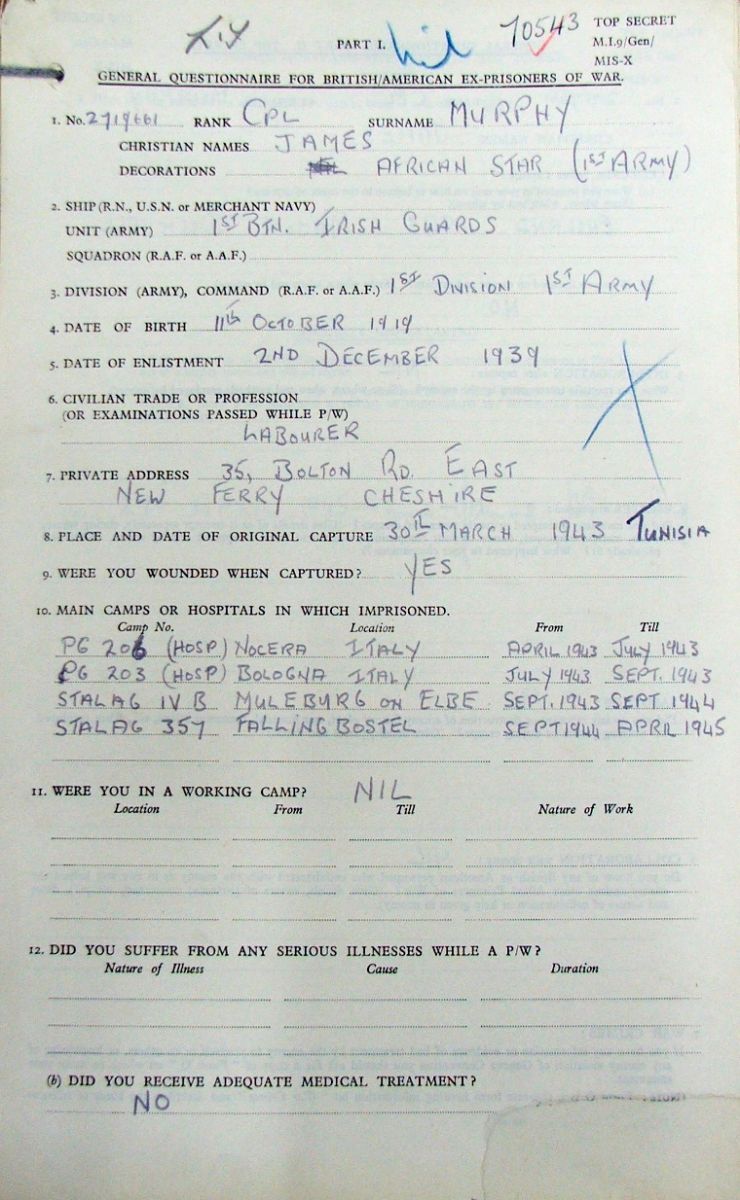 PART I.
nil
10543
TOP SECRET
M.I.9/Gen/
MIS-X
GENERAL QUESTIONNAIRE FOR BRITISH/AMERICAN EX-PRISONERS OF WAR.
1. No. 2719661 RANK CPL SURNAME MURPHY
CHRISTIAN NAMES JAMES
DECORATIONS AFRICAN STAR (1ST ARMY)
2. SHIP (R.N., U.S.N. or MERCHANT NAVY)
UNIT (ARMY) 1ST BTN. IRISH GUARDS
SQUADRON (R.A.F. or A.A.F.)
3. DIVISION (ARMY), COMMAND (R.A.F. or A.A.F.) 1ST DIVISION 1ST ARMY
4. DATE OF BIRTH 11th OCTOBER 1919
5. DATE OF ENLISTMENT 2ND DECEMBER 1939
6. CIVILIAN TRADE OR PROFESSION
(OR EXAMINATIONS PASSED WHILE P/W)
LABOURER
7. PRIVATE ADDRESS 35, BOLTON RD. EAST
NEW FERRY CHESHIRE
8. PLACE AND DATE OF ORIGINAL CAPTURE 30TH MARCH 1943 TUNISIA
9. WERE YOU WOUNDED WHEN CAPTURED? YES
10. MAIN CAMPS OR HOSPITALS IN WHICH IMPRISONED.
Camp No. Location From Till
PG 206 (HOSP) NOCERA ITALY APRIL 1943 JULY 1943
PG 203 (HOSP) BOLOGNA ITALY JULY 1943 SEPT. 1943
STALAG IV B MULEBURG ON ELBE SEPT. 1943 SEPT 1944
STALAG 357 FALLINGBOSTEL SEPT 1944 APRIL 1945
11. WERE YOU IN A WORKING CAMP? NIL
Location From Till Nature of Work
12. DID YOU SUFFER FROM ANY SERIOUS ILLNESSES WHILE A P/W?
Nature of Illness Cause Duration
(b) DID YOU RECEIVE ADEQUATE MEDICAL TREATMENT?
NO